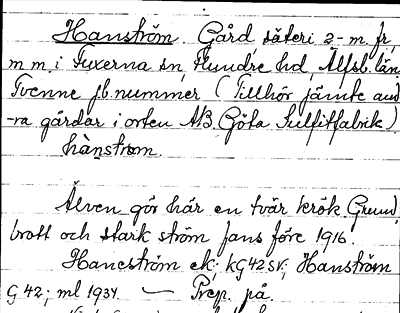 Hanström. Gård säteri 2-m. fr,
m m. i Fuxerna sn, Flundre hd, Älfsb. län,
Tvenne jb. nummer (Tillhör jämte and
-ra gårdar i orten AB. Göta Sulfitfabrik)
hànstrøm.
Älven gör här en tvär krök. Grund,
brott och stark ström fans före 1916.
Hanestrøm ek. kG42SV; Hanström
G 42; ml 1934. — Prep. på.